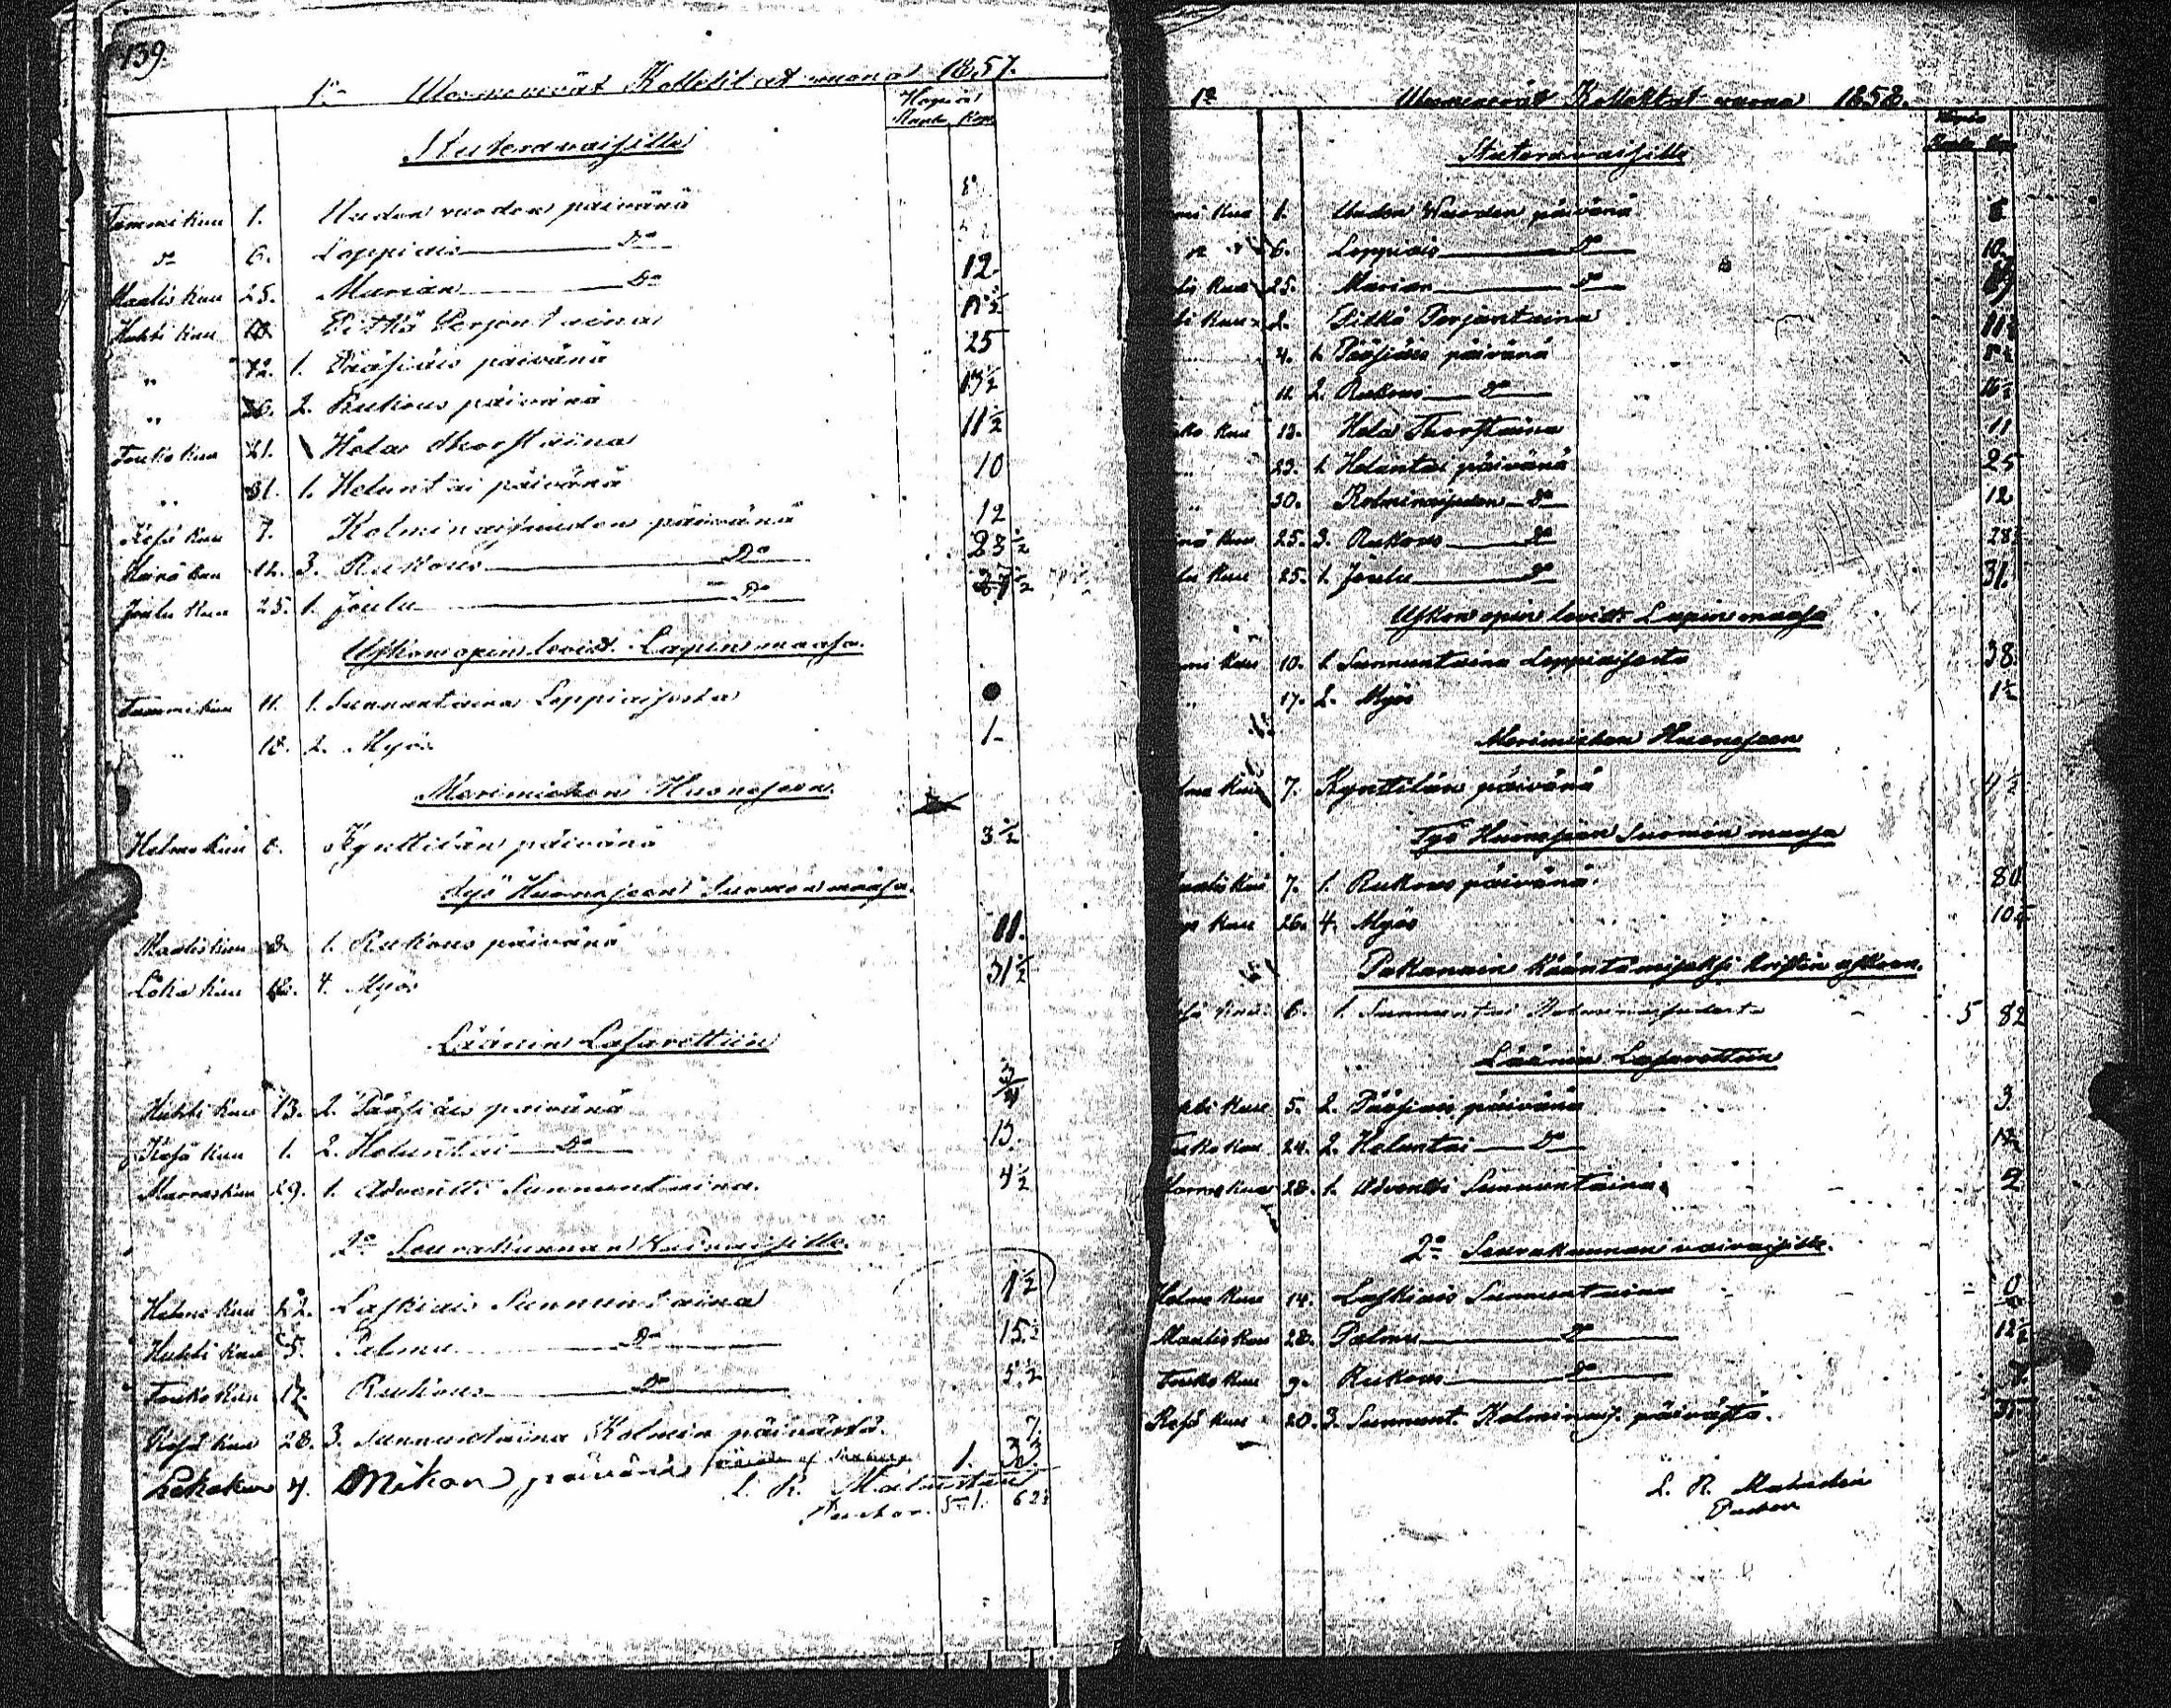 139.
1:o Ulosmenevät Kollektat vuona 1857.
Hopia
Rupl. Kop.
Stuteravaisille
Tammi kuu 1. Uuden vuoden päivänä 8
Do 6. Loppiais Do
Maalis kuu 25. Marian Do 12
Huhti kuu 10. Pitkä Perjantaina 11 1/2
„ 12. 1. Pääsiäis päivänä 25
„ 26. 2. Rukous päivänä 13 1/2
Touko kuu 21. Hela thorstaina 11 1/2
„ 31. 1. Heluntai päivänä 10
Kesä kuu 7. Kolminaisuuden päivänä 12
Heinä kuu 12. 3. Rukous Do 23 1/2
Joulu kuu 25. 1. Joulu Do
Uskonopin levit. Lapinmaasa.
Tammi kuu 11. 1. Sunnuntaina Loppiaisesta
„ 18. 2. Myös 1
Merimiehen Huoneseen
Helme kuu 8. Kynttilän päivänä 3 1/2
Työ Huoneseen Suomenmaasa.
Maalis kuu 8. 1. Rukous päivänä 11.
Loka kuu 18. 4. Myös 31 1/2
Läänin Lasarettiin
Huhti kuu 13. 2. Pääsiäis päivänä 3/4
Kesä kuu 1. 2. Heluntai Do 13.
Marras kuu 29. 1. Adventti Sunnuntaina. 4 1/2
2:o Seurakunnan Vaivaisille.
Helme kuu 22. Laskiais Sunnuntaina 1 1/2
Huhti kuu 5. Palmu Do 15 1/2
Touko kuu 17. Rukous Do 5 1/2
Kesä kuu 28. 3. Sunnuntaina Kolmin päivästä. 7
Lokakuu 4. Mikon päivänä 1. 33
L. R. Malmstén
Pastor.
1:o Ulosmenevät Kollektat vuona 1858.
Hopia
Rupla Kop.
Stuteravaisille
mi kuu 1. Uuden Vuoden päivänä 8
6. Loppiais Do 10
lis kuu 25. Marian Do
ti kuu 2. Pitkä Perjantaina 11
4. 1. Pääsiäis päivänä
11. 2. Rukous Do
ko kuu 13. Hela Thorstaina 11
„ 23. 1. Heluntai päivänä 25
„ 30. Kolminaisuden Do 12
nä kuu 25. 3. Rukous Do 28
lu kuu 25. 1. Joulu Do 31.
Uskon opin levitt. Lapinmaasa
mi kuu 10. 1. Sunnuntaina Loppiaisesta 38
„ 17. 2. Myös 1 1/2
Merimiehen Huoneseen
lme kuu 7. Kynttilän päivänä 4 1/2
Työ Huoneseen Suomen maasa
aalis kuu 7. 1. Rukous päivänä. 80
kuu 26. 4. Myös 10
Pakanain kääntämiseksi kristin uskoon.
sä kuu 6. 1. Sunnuntai Kolminaisudesta 5 82
Läänin Lasarettiin
hti kuu 5. 2. Pääsiäis päivänä 3
uko kuu 24. 2. Heluntai Do
Marras kuu 28. 1. Adventti Sunnuntaina. 2
2:o Seurakunnan vaivaisille.
Helme kuu 14. Laskiais Sunnuntaina
Maalis kuu 28. Palmu Do 12 1/2
Touko kuu 9. Rukous Do 7.
Kesä kuu 20. 3. Sunnunt. Kolminais. päivästä.
L. R. Malmstén
Pastor